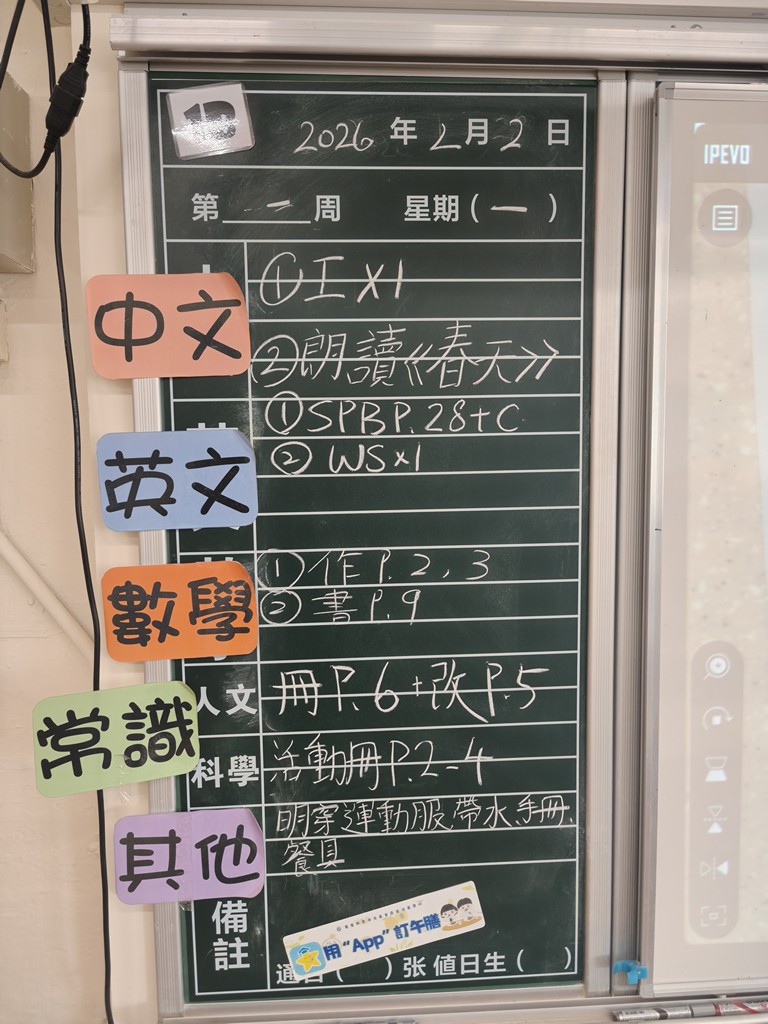 1D
2026 年 2 月 2 日
第 一 周 星期 ( 一 )
中文
① 工 X 1
② 朗讀《春天》
英文
① SPB P.28 + C
② WS x 1
數學
① 作 P.2, 3
② 書 P.9
常識
人文
冊 P.6 + 改 P.5
科學
活動冊 P.2-4
其他
明穿運動服, 帶水, 手冊,
餐具
備註
用 "App" 訂午膳
通告 ( ) 张 值日生 ( )
IPEVO